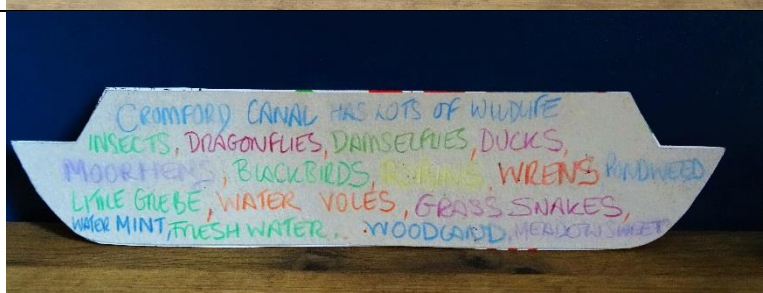 CROMFORD CANAL HAS LOTS OF WILDLIFE
INSECTS, DRAGONFLIES, DAMSELFLIES, DUCKS,
MOORHENS, BLACKBIRDS, ROBINS, WRENS, PONDWEED
LITTLE GREBE, WATER VOLES, GRASS SNAKES,
WATER MINT, FRESH WATER... WOODLAND, MEADOWSWEET